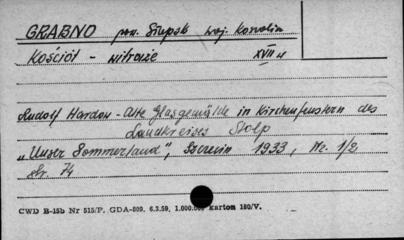 GRABNO pow. Słupsk woj. Koszalin
Kościół - witraże XVII w
Rudolf Hardow - Alte Glasgemälde in Kirchenfenstern des
Landkreises Stolp
„Unser Pommerland", Szczecin 1933, Nr. 1/2
str. 74
CWD B-15b Nr 515/P, GDA-809, 6.3.59, 1.000.000 karton 180/V.